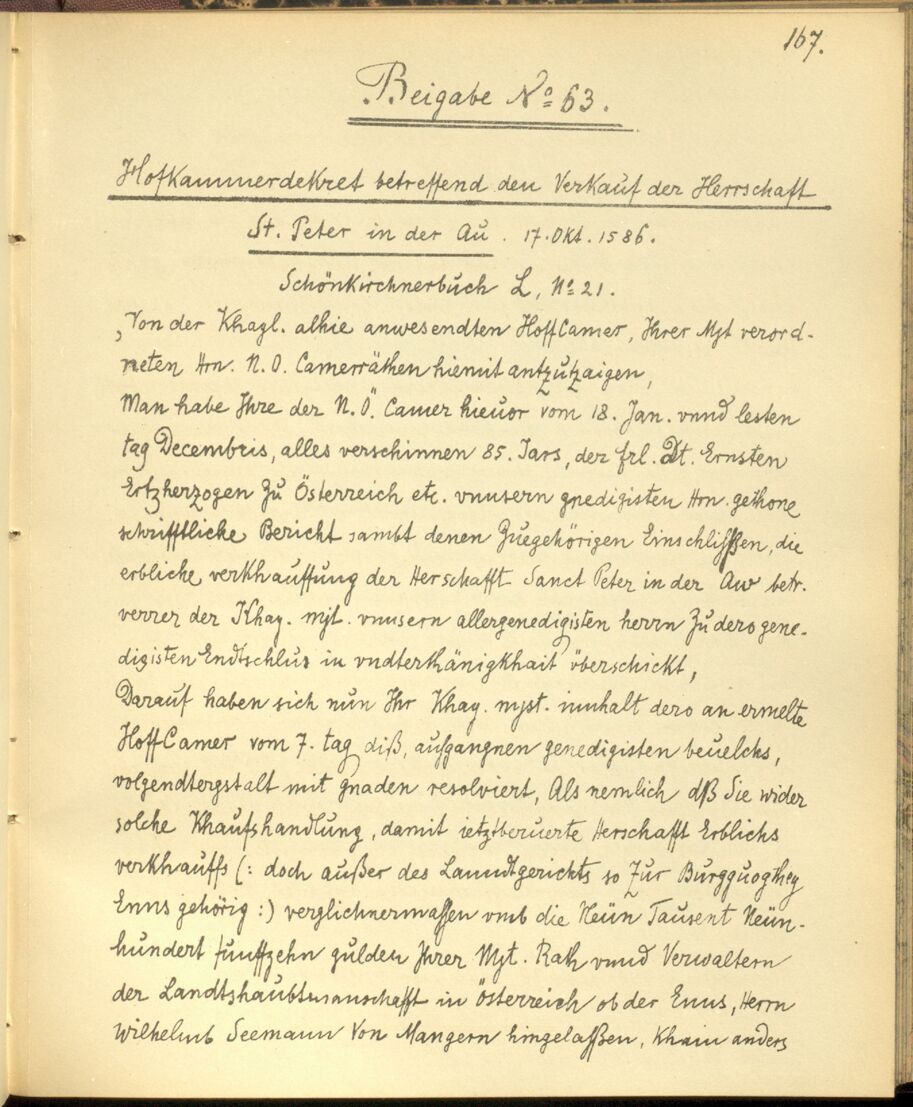 167.
Beigabe No 63.
Hofkammerdekret betreffend den Verkauf der Herrschaft
St. Peter in der Au. 17. Okt. 1586.
Schönkirchnerbuch L, No 21.
„Von der Khagl. alhie anwesendten HoffCamer, Ihrer Mjt verord-
neten Hrn. N. O. Camerräthen hiemit antzutzaigen,
Man habe Ihre der N. Ö. Camer hieuor vom 18. Jan. vnnd lesten
tag Decembris, alles verschinnen 85. Jars, der frl. Dt. Ernsten
Ertzherzogen zu Österreich etc. vnnsern gnedigisten Hrn. gethone
schrifftliche Bericht sambt denen zuegehörigen Einschlissen, die
erbliche verkhauffung der Herschafft Sanct Peter in der Aw betr.
verrer der Khay. mjt. vnnsern allergenedigisten herrn zu dero gene-
digisten Endtschlus in vndterthänigkhait überschickt,
Darauf haben sich nun Ihr Khay. myst. innhalt dero an ermelte
HoffCamer vom 7. tag diß, aufgangnen genedigisten beuelchs,
volgendtergstalt mit gnaden resolviert, Als nemlich dß Sie wider
solche Khaufshandlung, damit ietztberuerte Herschafft Erblichs
verkhauffs (: doch außer des Lanndtgerichts so zur Burgguogthey
Enns gehörig :) verglichnermassen vmb die Neün Tausent Neün-
hundert fünffzehn gulden Ihrer Mjt. Rath vnnd Verwaltern
der Landtshaubtmanschafft in Österreich ob der Enns, Herrn
Wilhelmb Seemann von Mangern hingelaßen, Khain anders